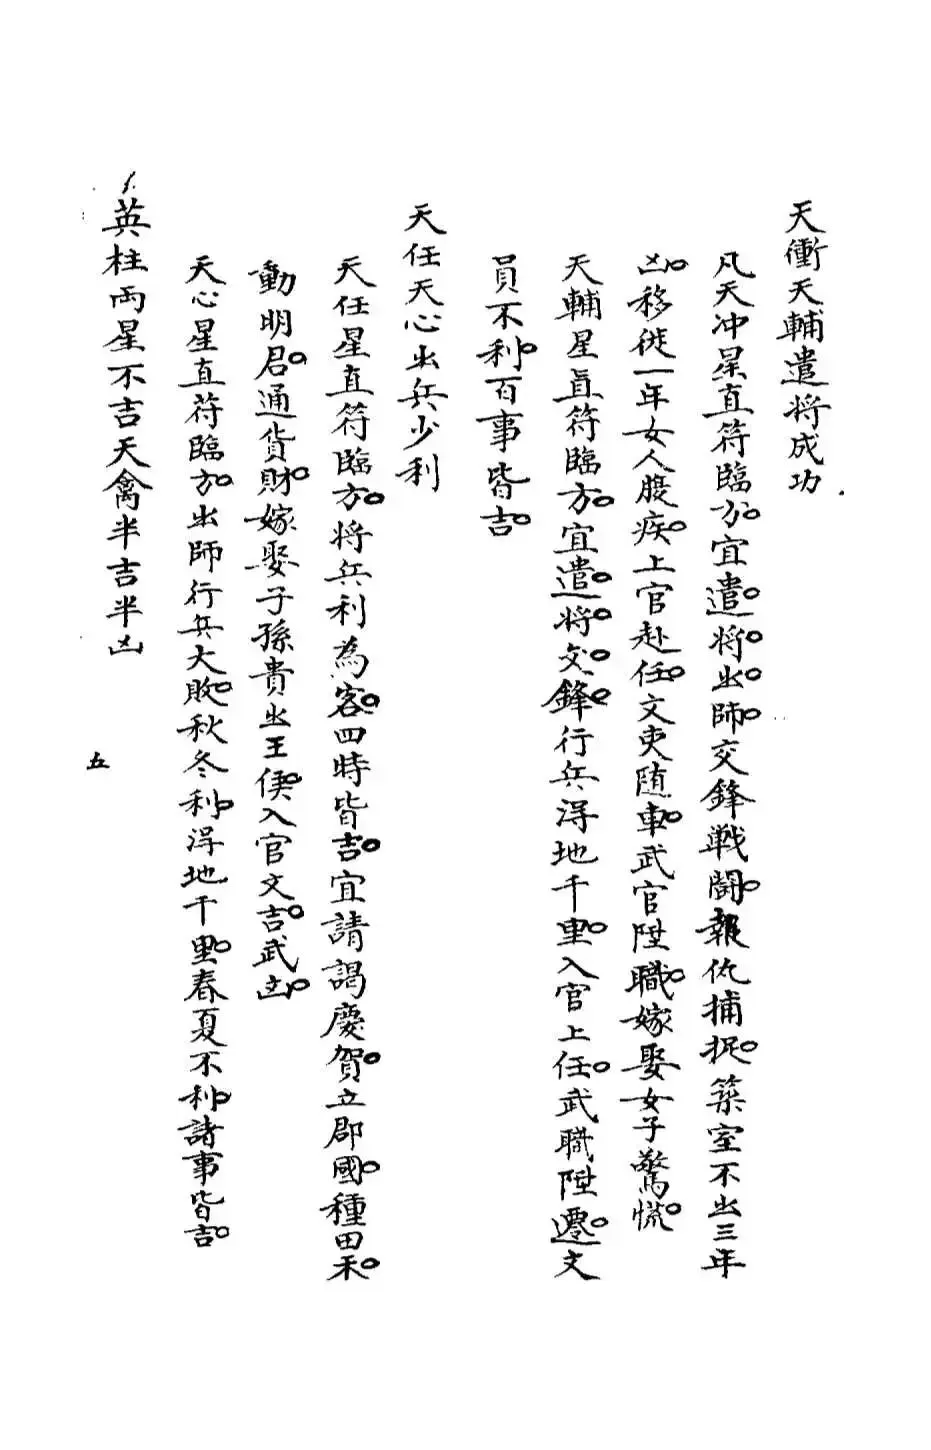 天衝天輔遣将成功
凡天冲星直符臨方。宜遣。将。出。師。交鋒戦鬪。報仇捕捉。築室不出三年
凶。移徙一年女人腹疾。上官赴任。文吏随車。武官陞職。嫁娶女子驚慌。
天輔星直符臨方。宜遣。将。交。鋒。行兵淂地千里。入官上任。武職陞遷。文
員不利。百事皆吉。
天任天心出兵少利
天任星直符臨方。将兵利為客。四時皆吉。宜請謁慶賀。立郡國。種田禾。
動明君。通貨財。嫁娶子孫貴出王侯。入官文吉。武凶。
天心星直苻臨方。出師行兵大敗。秋冬利。淂地千里。春夏不利。諸事皆吉。
英柱両星不吉天禽半吉半凶
五